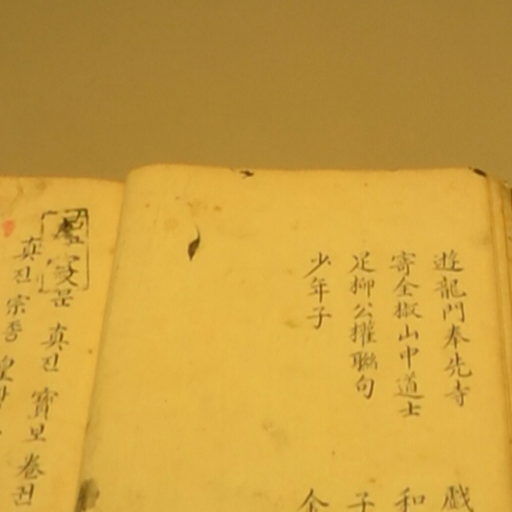 遊龍門奉先寺
寄全椒山中道士
足柳公權聯句
少年子
戱
和
子
金
真진宗종皇
문真진寶보卷권